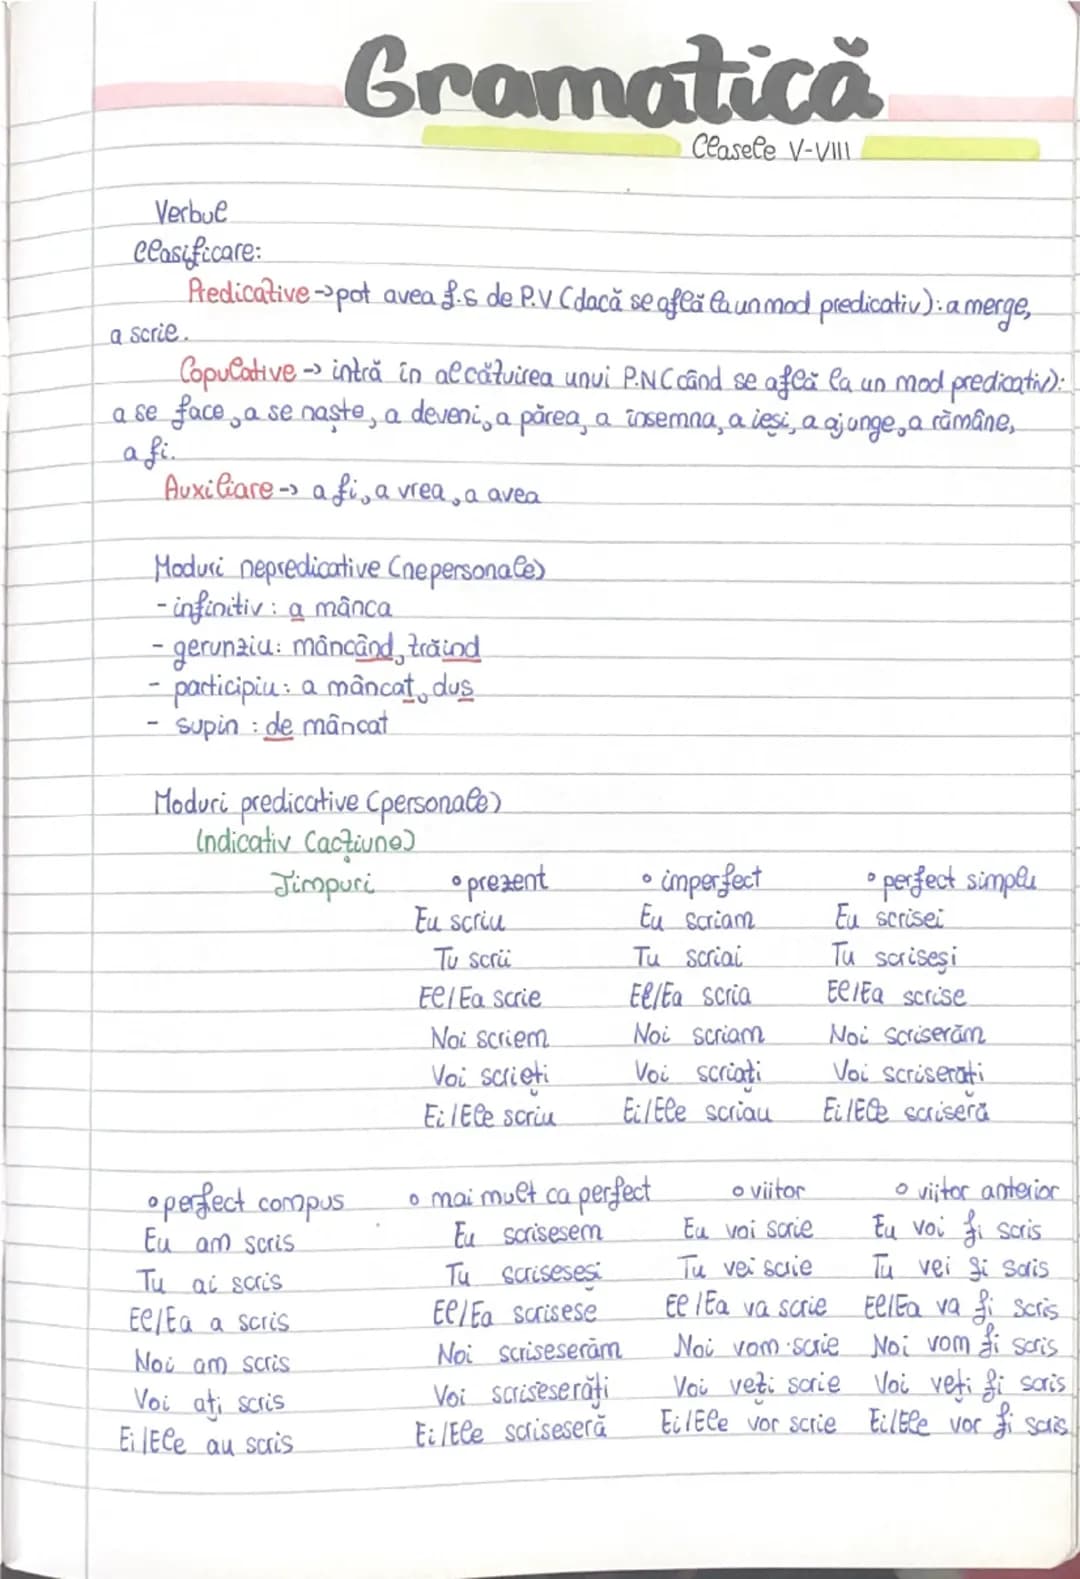 Gramatică
Clasele V-VIII
Verbul
Clasificare:
Predicative → pot avea f.s de P.V (dacă se află la un mod predicativ): a merge,
a scrie.
Copulative → intră în alcătuirea unui P.N (când se află la un mod predicativ):
a se face, a se naște, a deveni, a părea, a însemna, a ieși, a ajunge, a rămâne,
a fi.
Auxiliare → a fi, a vrea, a avea
Moduri nepredicative (nepersonale)
- infinitiv: a mânca
- gerunziu: mâncând, trăind
- participiu: a mâncat, dus
- supin: de mâncat
Moduri predicative (personale)
Indicativ (acțiune)
Timpuri ∘ prezent ∘ imperfect ∘ perfect simplu
Eu scriu Eu scriam Eu scrisei
Tu scrii Tu scriai Tu scriseși
El/Ea scrie El/Ea scria El/Ea scrise
Noi scriem Noi scriam Noi scriserăm
Voi scrieți Voi scriați Voi scriserați
Ei/Ele scriu Ei/Ele scriau Ei/Ele scriseră
∘ perfect compus ∘ mai mult ca perfect ∘ viitor ∘ viitor anterior
Eu am scris Eu scrisesem Eu voi scrie Eu voi fi scris
Tu ai scris Tu scriseseși Tu vei scrie Tu vei fi scris
El/Ea a scris El/Ea scrisese El/Ea va scrie El/Ea va fi scris
Noi am scris Noi scriseserăm Noi vom scrie Noi vom fi scris
Voi ați scris Voi scriseserăți Voi veți scrie Voi veți fi scris
Ei/Ele au scris Ei/Ele scriseseră Ei/Ele vor scrie Ei/Ele vor fi scris